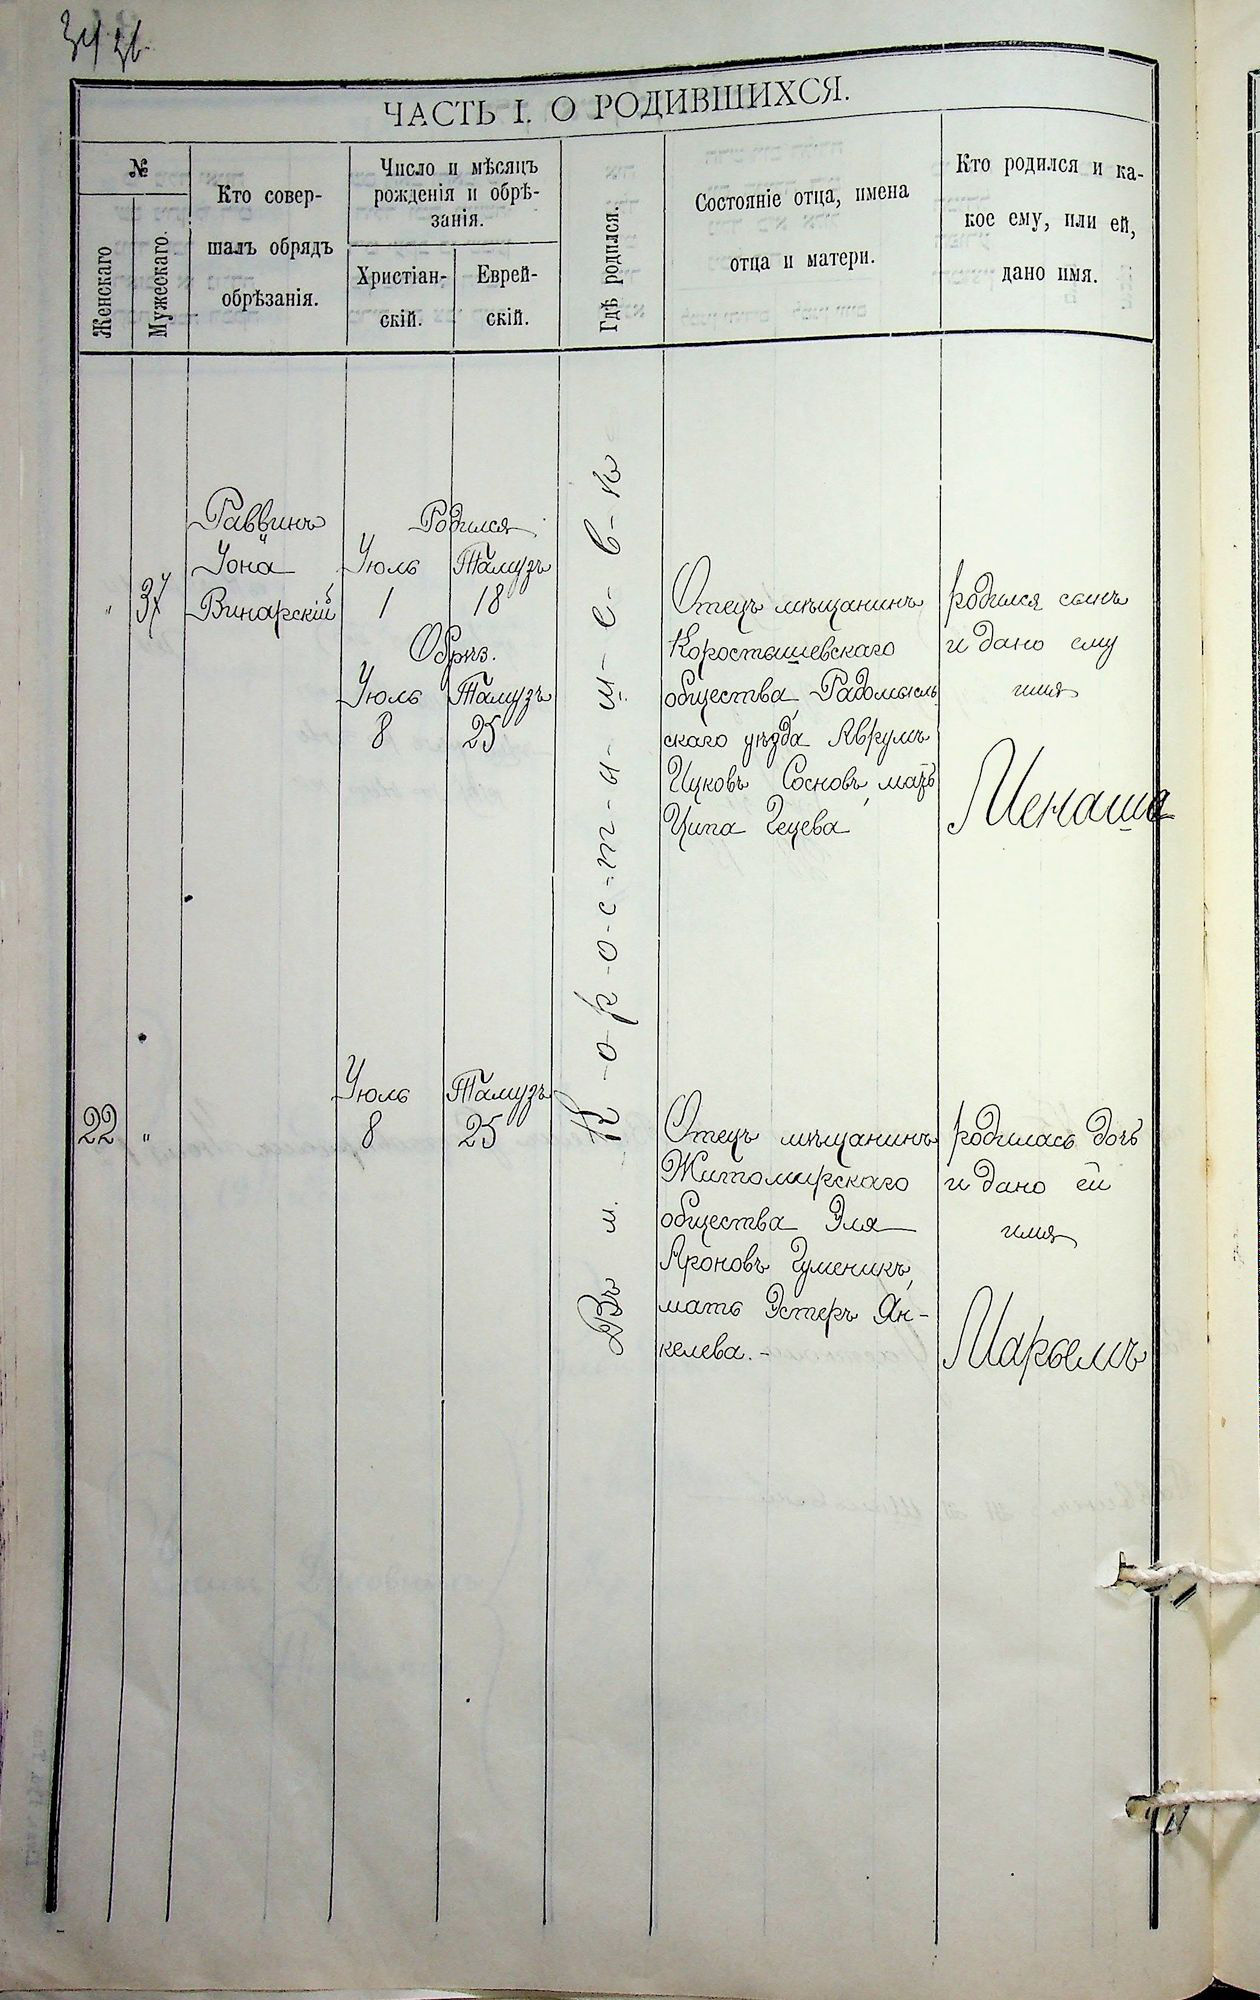 ЧАСТЬ I. О РОДИВШИХСЯ.
№
Женскаго
Мужескаго.
Кто совер-
шалъ обрядъ
обрѣзанія.
Число и мѣсяцъ
рожденія и обрѣ-
занія.
Христіан-
скій.
Еврей-
скій.
Гдѣ родился.
Состояніе отца, имена
отца и матери.
Кто родился и ка-
кое ему, или ей,
дано имя.
"
Раввинъ
Іона
Винарскій
Родился
Іюль Тамузъ
1 18
Обрѣз.
Іюль Тамузъ
8 25
Въ м. К-о-р-о-с-т-ы-ш-е-в-ѣ
Отецъ мѣщанинъ
Коростышевскаго
общества, Радомысль
скаго уѣзда Аврумъ
Ицковъ Сосновъ, мать
Ципа
родился сынъ
и дано ему
имя
Менаша
22 "
Іюль Тамузъ
8 25
Отецъ мѣщанинъ
Житомирскаго
общества Эля
Ароновъ Гуменикъ,
мать Эстеръ Ян-
келева.-
родилась дочь
и дано ей
имя
Марьемъ